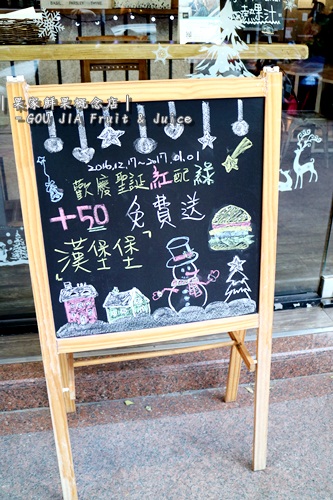 | 果家鮮果概念店 |
- GOU JIA Fruit & Juice
2016.12.17~2017.01.01
歡慶聖誕紅配綠
+50 免費送
「漢堡堡」